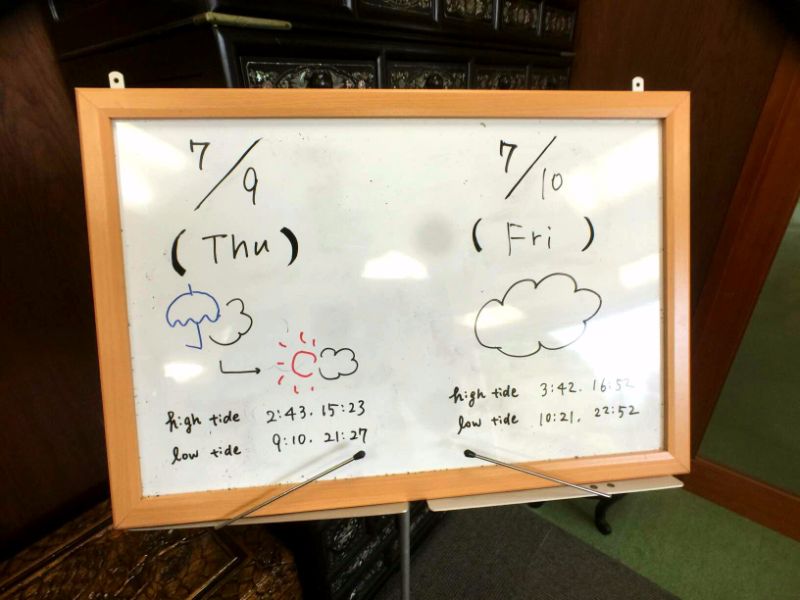 7/9
(Thu)
high tide 2:43. 15:23
low tide 9:10. 21:27
7/10
(Fri)
high tide 3:42. 16:52
low tide 10:21. 22:52